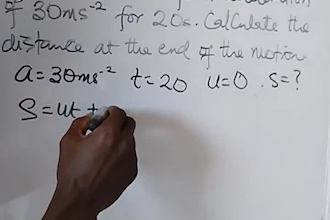 of 30ms⁻² for 20s. Calculate the
distance at the end of the motion
a=30ms⁻² t=20 u=0 . s=?
S=ut +